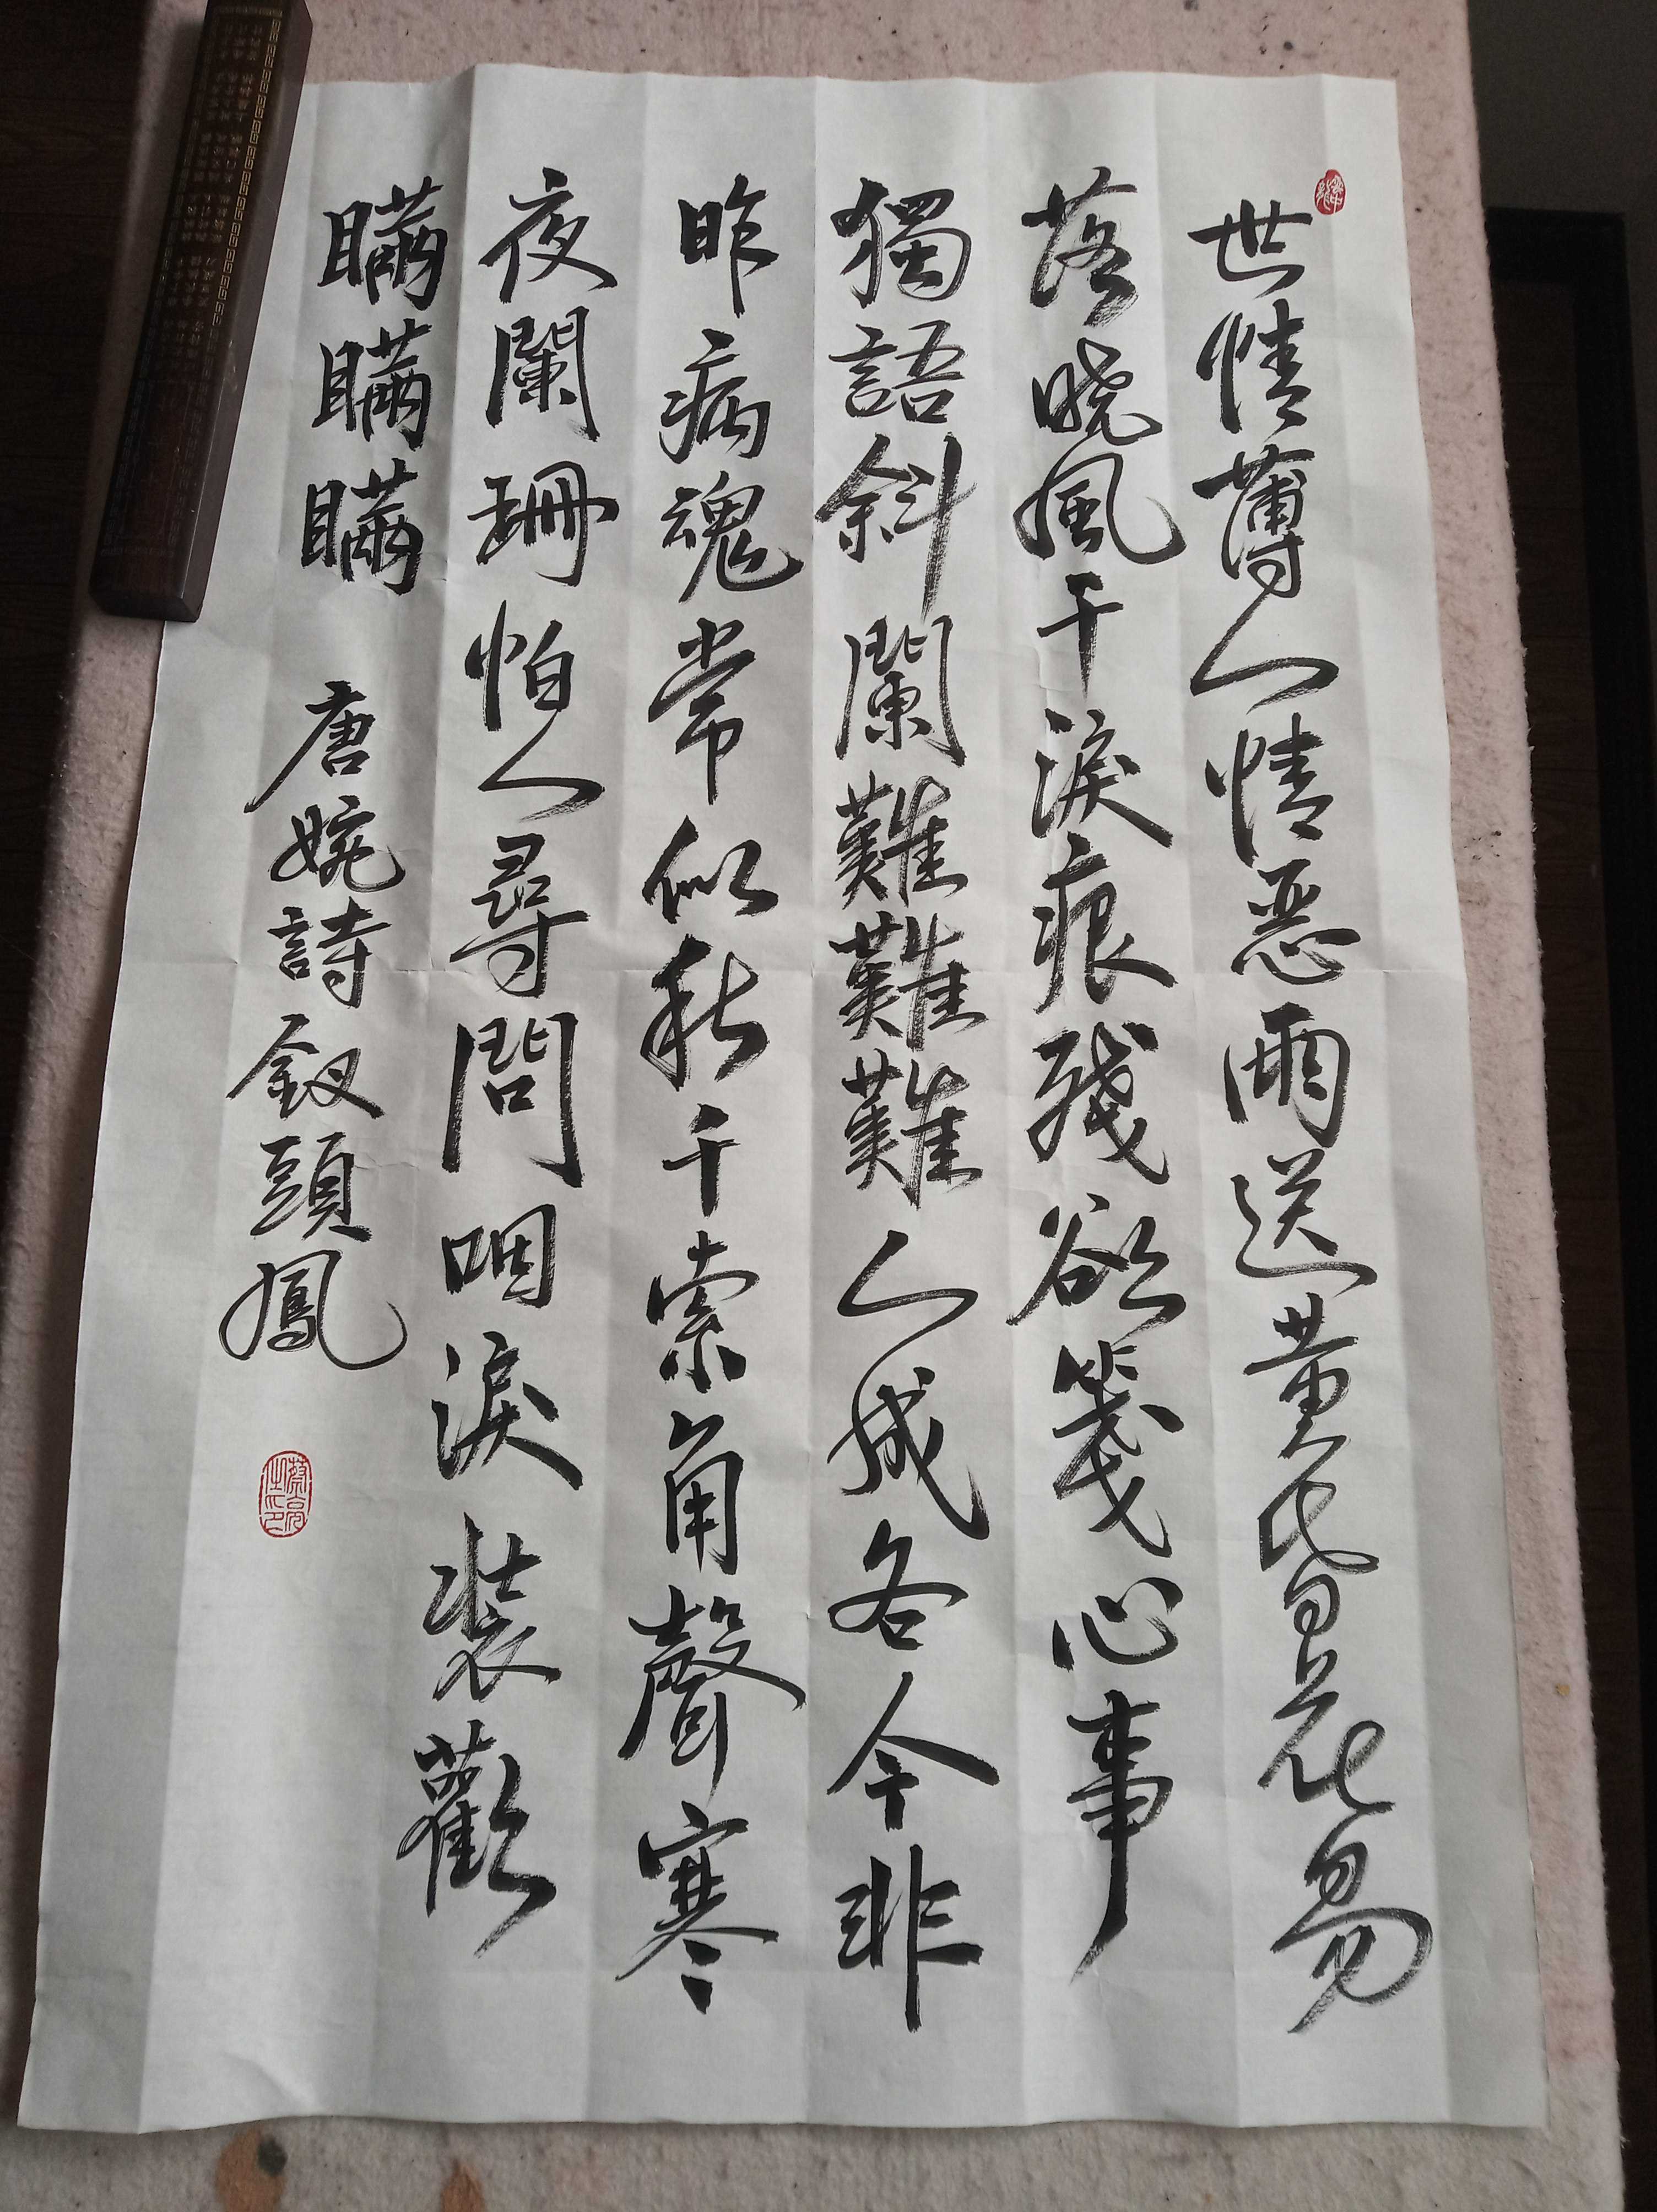 世情薄人情恶雨送黄昏花易
落晓風干淚痕殘欲箋心事
獨語斜闌難難難人成各今非
昨病魂常似秋千索角聲寒
夜闌珊怕人尋問咽淚装歡
瞞瞞瞞 唐婉詩釵頭鳳